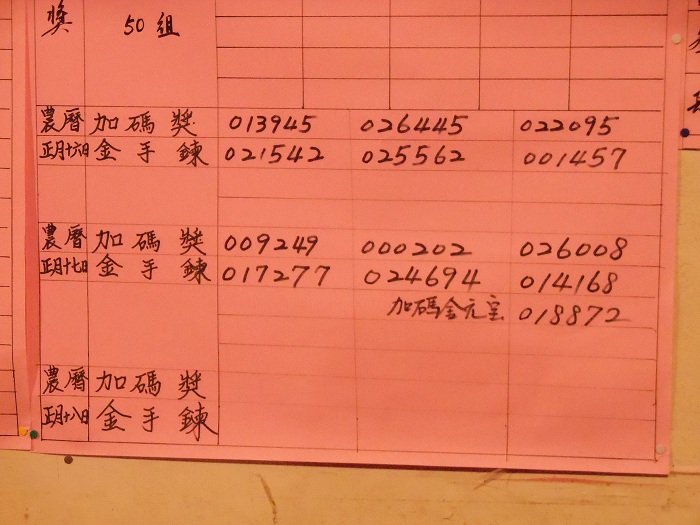 獎 50組
農曆 加碼獎 013945 026445 022095
正月十六日 金手鍊 021542 025562 001457
農曆 加碼獎 009249 000202 026008
正月十七日 金手鍊 017277 024694 014168
加碼金元宝 018872
農曆 加碼獎
正月十八日 金手鍊